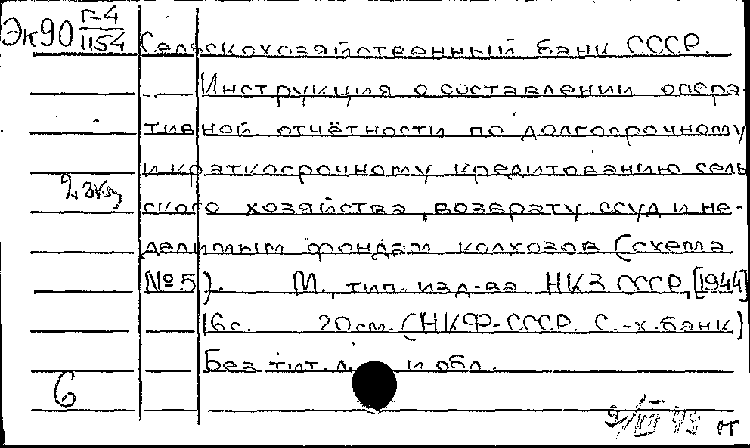 Эк90 Г-4
1154
Сельскохозяйственный банк СССР.
Инструкция о составлении опера-
тивной отчётности по долгосрочному
и краткосрочному кредитованию сель-
2 экз
ского хозяйства, возврату ссуд и не-
делимым фондам колхозов (схема
№5). М., тип. изд-ва НКЗ СССР, [1944]
16с. 20см. (НКФ-СССР. С.-х. банк)
Без тит. л. и обл.
6